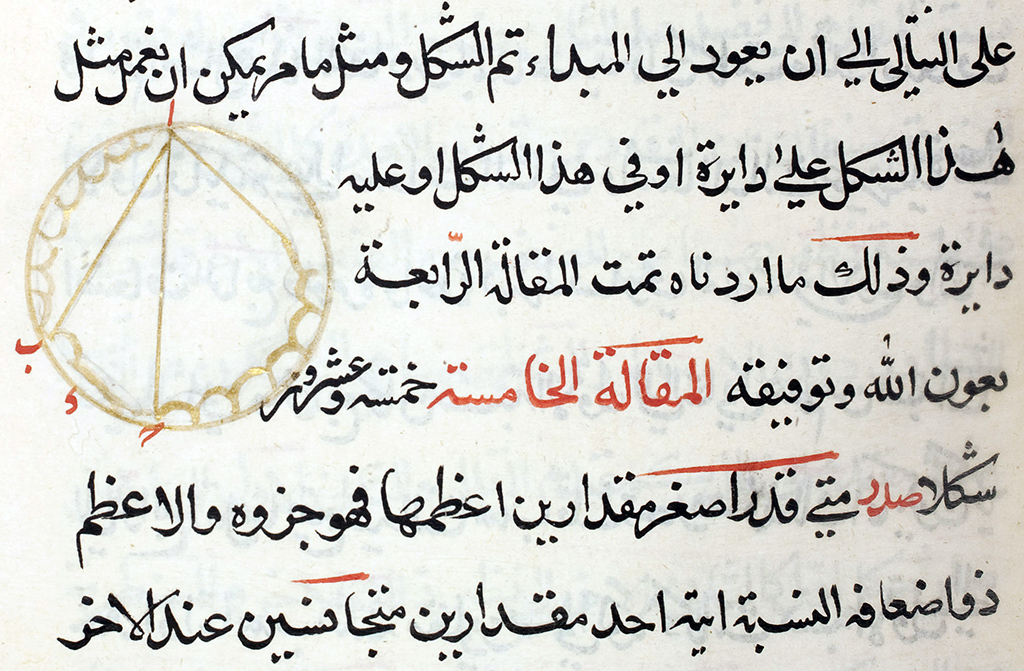 على التتالى الى ان يعود الى المبداء تم الشكل ومثل ما مر يمكن ان نعمل مثل
هذا الشكل على دايرة او في هذا الشكل او عليه
دايرة وذلك ما اردناه تمت المقالة الرابعة
بعون الله وتوفيقه المقالة الخامسة خمسة وعشرون
شكلا صدر متى قدر اصغر مقدارين اعظمها فهو جزوه والاعظم
ذو اضعافه النسبة اية احد مقدارين متجانسين عند الاخر
ا
ب
ء
ح